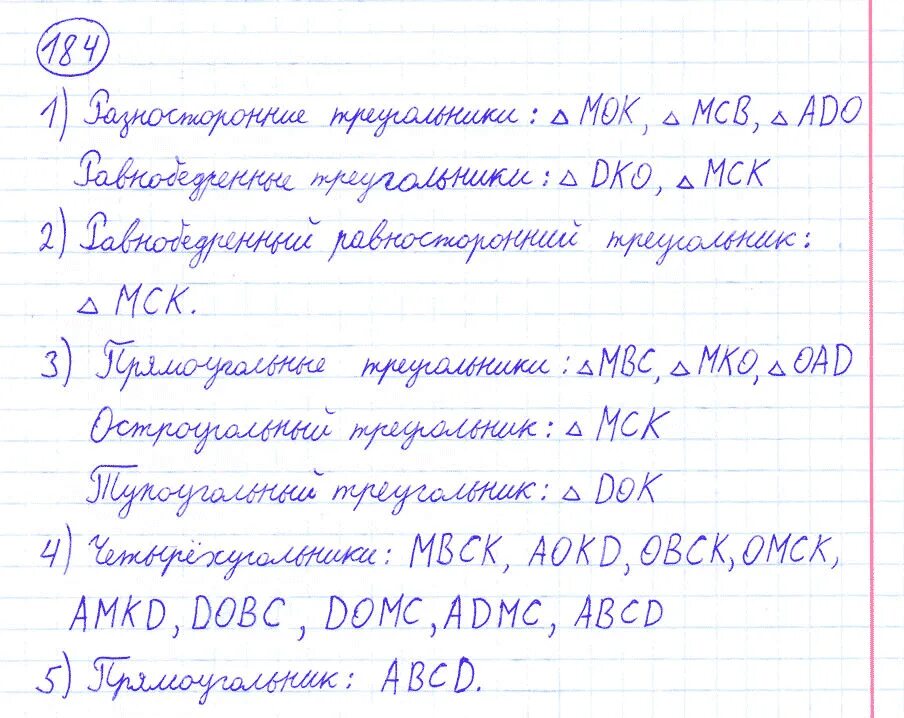 184
1) Разносторонние треугольники: △ MOK, △ MCB, △ ADO
Равнобедренные треугольники: △ DKO, △ MCK
2) Равнобедренный равносторонний треугольник:
△ MCK.
3) Прямоугольные треугольники: △ MBC, △ MKO, △ OAD
Остроугольный треугольник: △ MCK
Тупоугольный треугольник: △ DOK
4) Четырёхугольники: MBCK, AOKD, OBCK, OMCK,
AMKD, DOBC, DOMC, ADMC, ABCD
5) Прямоугольник: ABCD.